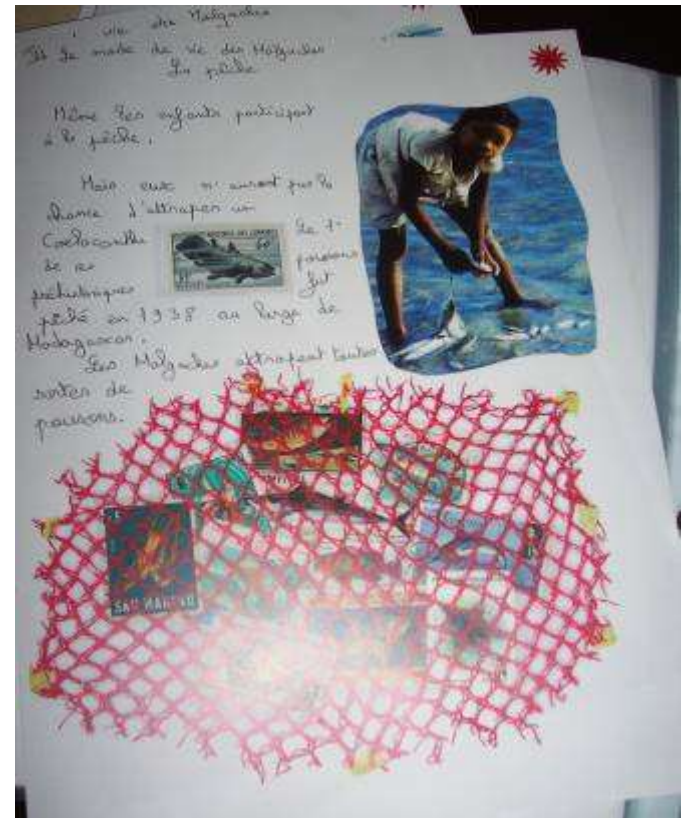 vie des Malgaches
Le mode de vie des Malgaches
La pêche
Même les enfants participent
à la pêche.
Mais eux n'auront pas la
chance d'attraper un
Coelacanthe Le 1er
de ces poissons
préhistoriques fut
pêché en 1938 au large de
Madagascar.
Les Malgaches attrapent toutes
sortes de
poissons.
SAN MARINO